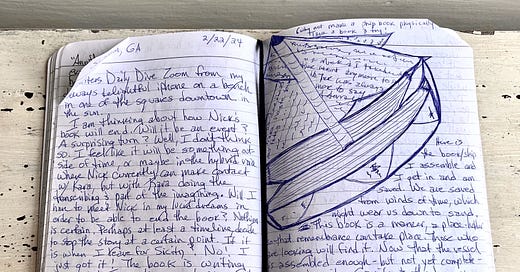 GA 2/22/24
Daily Dive Zoom from my
always delightful iphone on a bench
in one of the squares downtown in
the sun.
I am thinking about how Nick's
book will end. Will it be an event?
A surprising turn? Well, I don't think
so. I feel like it will be something at
side of time, or maybe in the hybrid
where Nick currently can make contact
w/ Kara, but with Kara doing the
transcribing & part of the imagining. Will I
have to meet Nick in my dreams in
order to be able to end the book? Nothing
is certain. Perhaps at least a timeline, decide
to stop the story at a certain point. Is it
is when I leave for Sicily? No! I
just got it! The book is writing,
why not make a ship book physically
like a book & toy!
Here is
the book/ship
I assemble and
I get in and am
saved. We are saved
from winds of time, which
might wear us down to sand,
this book is a marker, a place-holder
so that remembrance can take place. Those who
are looking will find it. Now that the vessel
is assembled enough - but not yet complete -